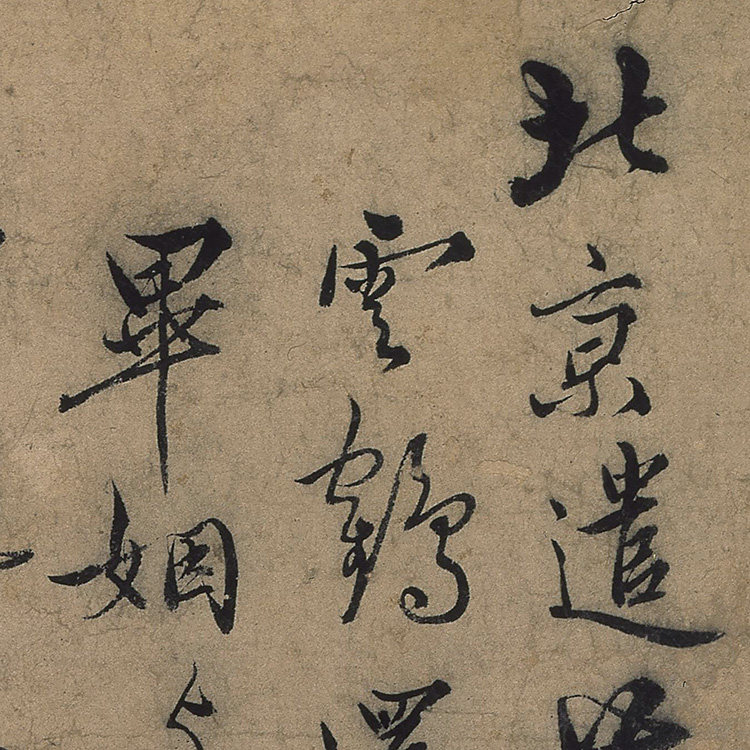 北京遣
雲鶴還
畢姻